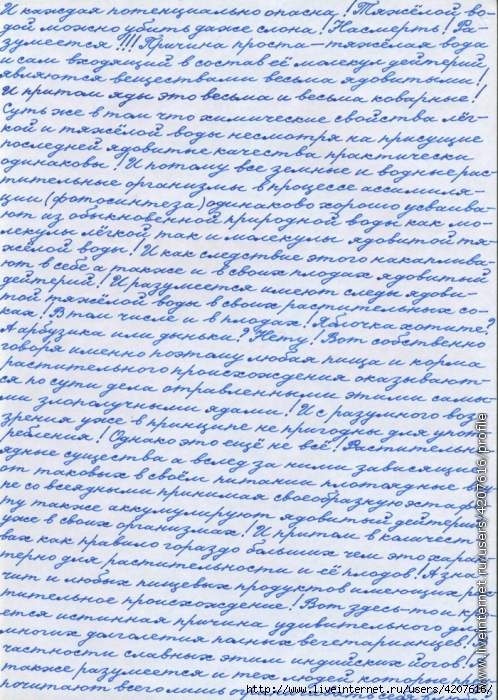 И каждая потенциально опасна! Тяжёлой во-
дой можно убить даже слона! Насмерть! Ра-
зумеется!!! Причина проста – тяжёлая вода
и сам входящий в состав её молекул дейтерий
являются веществами весьма ядовитыми!
И притом яды это весьма и весьма коварные!
Суть же в том что химические свойства лёг-
кой и тяжёлой воды несмотря на присущие
последней ядовитые качества практически
одинаковы! И потому все земные и водные рас-
тительные организмы в процессе ассимиля-
ции (фотосинтеза) одинаково хорошо усваива-
ют из обыкновенной природной воды как мо-
лекулы лёгкой так и молекулы ядовитой тя-
жёлой воды! И как следствие этого накаплива-
ют в себе а также и в своих плодах ядовитый
дейтерий! И разумеется имеют следы ядови-
той тяжёлой воды в своих растительных со-
ках! В том числе и в плодах! Яблочка хотите?
А арбузика или дыньки? Нету! Вот собственно
говоря именно поэтому любая пища и корма
растительного происхождения оказывают-
ся по сути дела отравленными этими самы-
ми злополучными ядами! И с разумного воз-
зрения уже в принципе не пригодны для упот-
ребления! Однако это ещё не всё! Растительно-
ядные существа а вслед за ними зависящие
от таковых в своём питании плотоядные
не со всеядными принимая своеобразную эстафе-
ту также аккумулируют ядовитый дейтерий
уже в своих организмах! И притом в количест-
вах как правило гораздо больших чем это харак-
терно для растительности и её плодов! А зна-
чит и любых пищевых продуктов имеющих рас-
тительное происхождение! Вот здесь-то и кро-
ется истинная причина удивительного дол
многих долголетия полных вегетарианцев! В
частности славных этим индийских йогов! А
также разумеется и тех людей которые пред-
почитают весьма
www.liveinternet.ru/users/4207616/profile
http://www.liveinternet.ru/users/4207616/